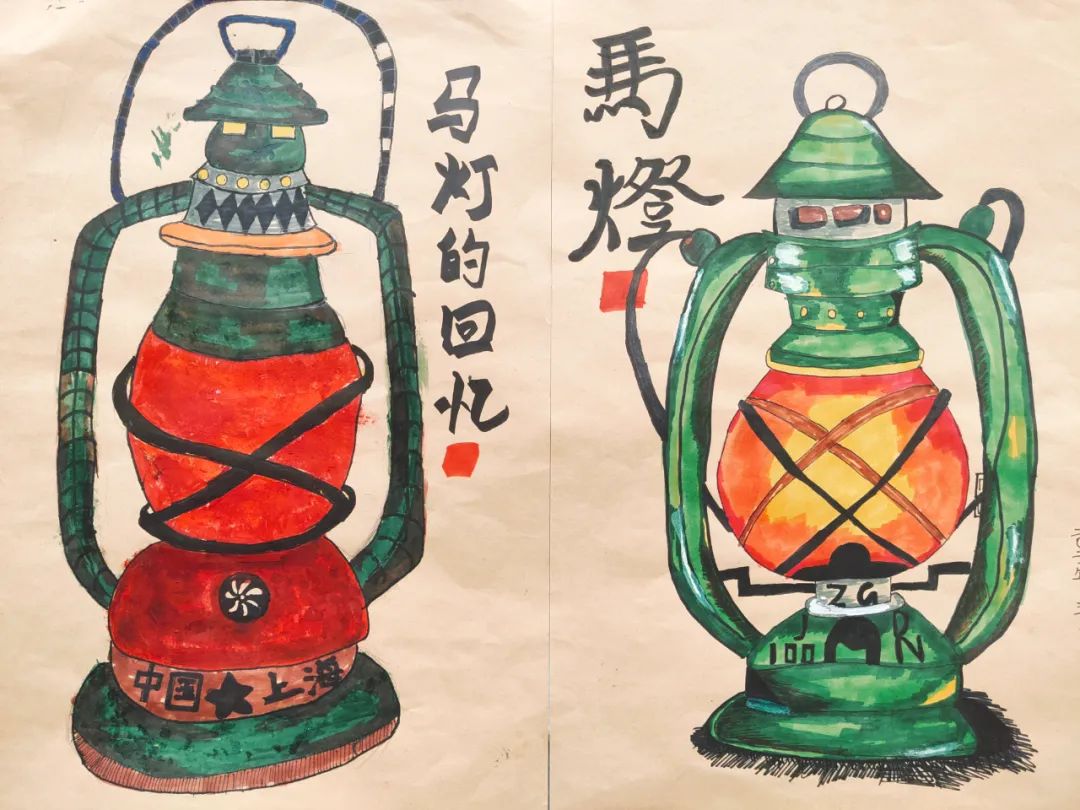 马灯的回忆
中国★上海
馬燈
ZG
J
100
R